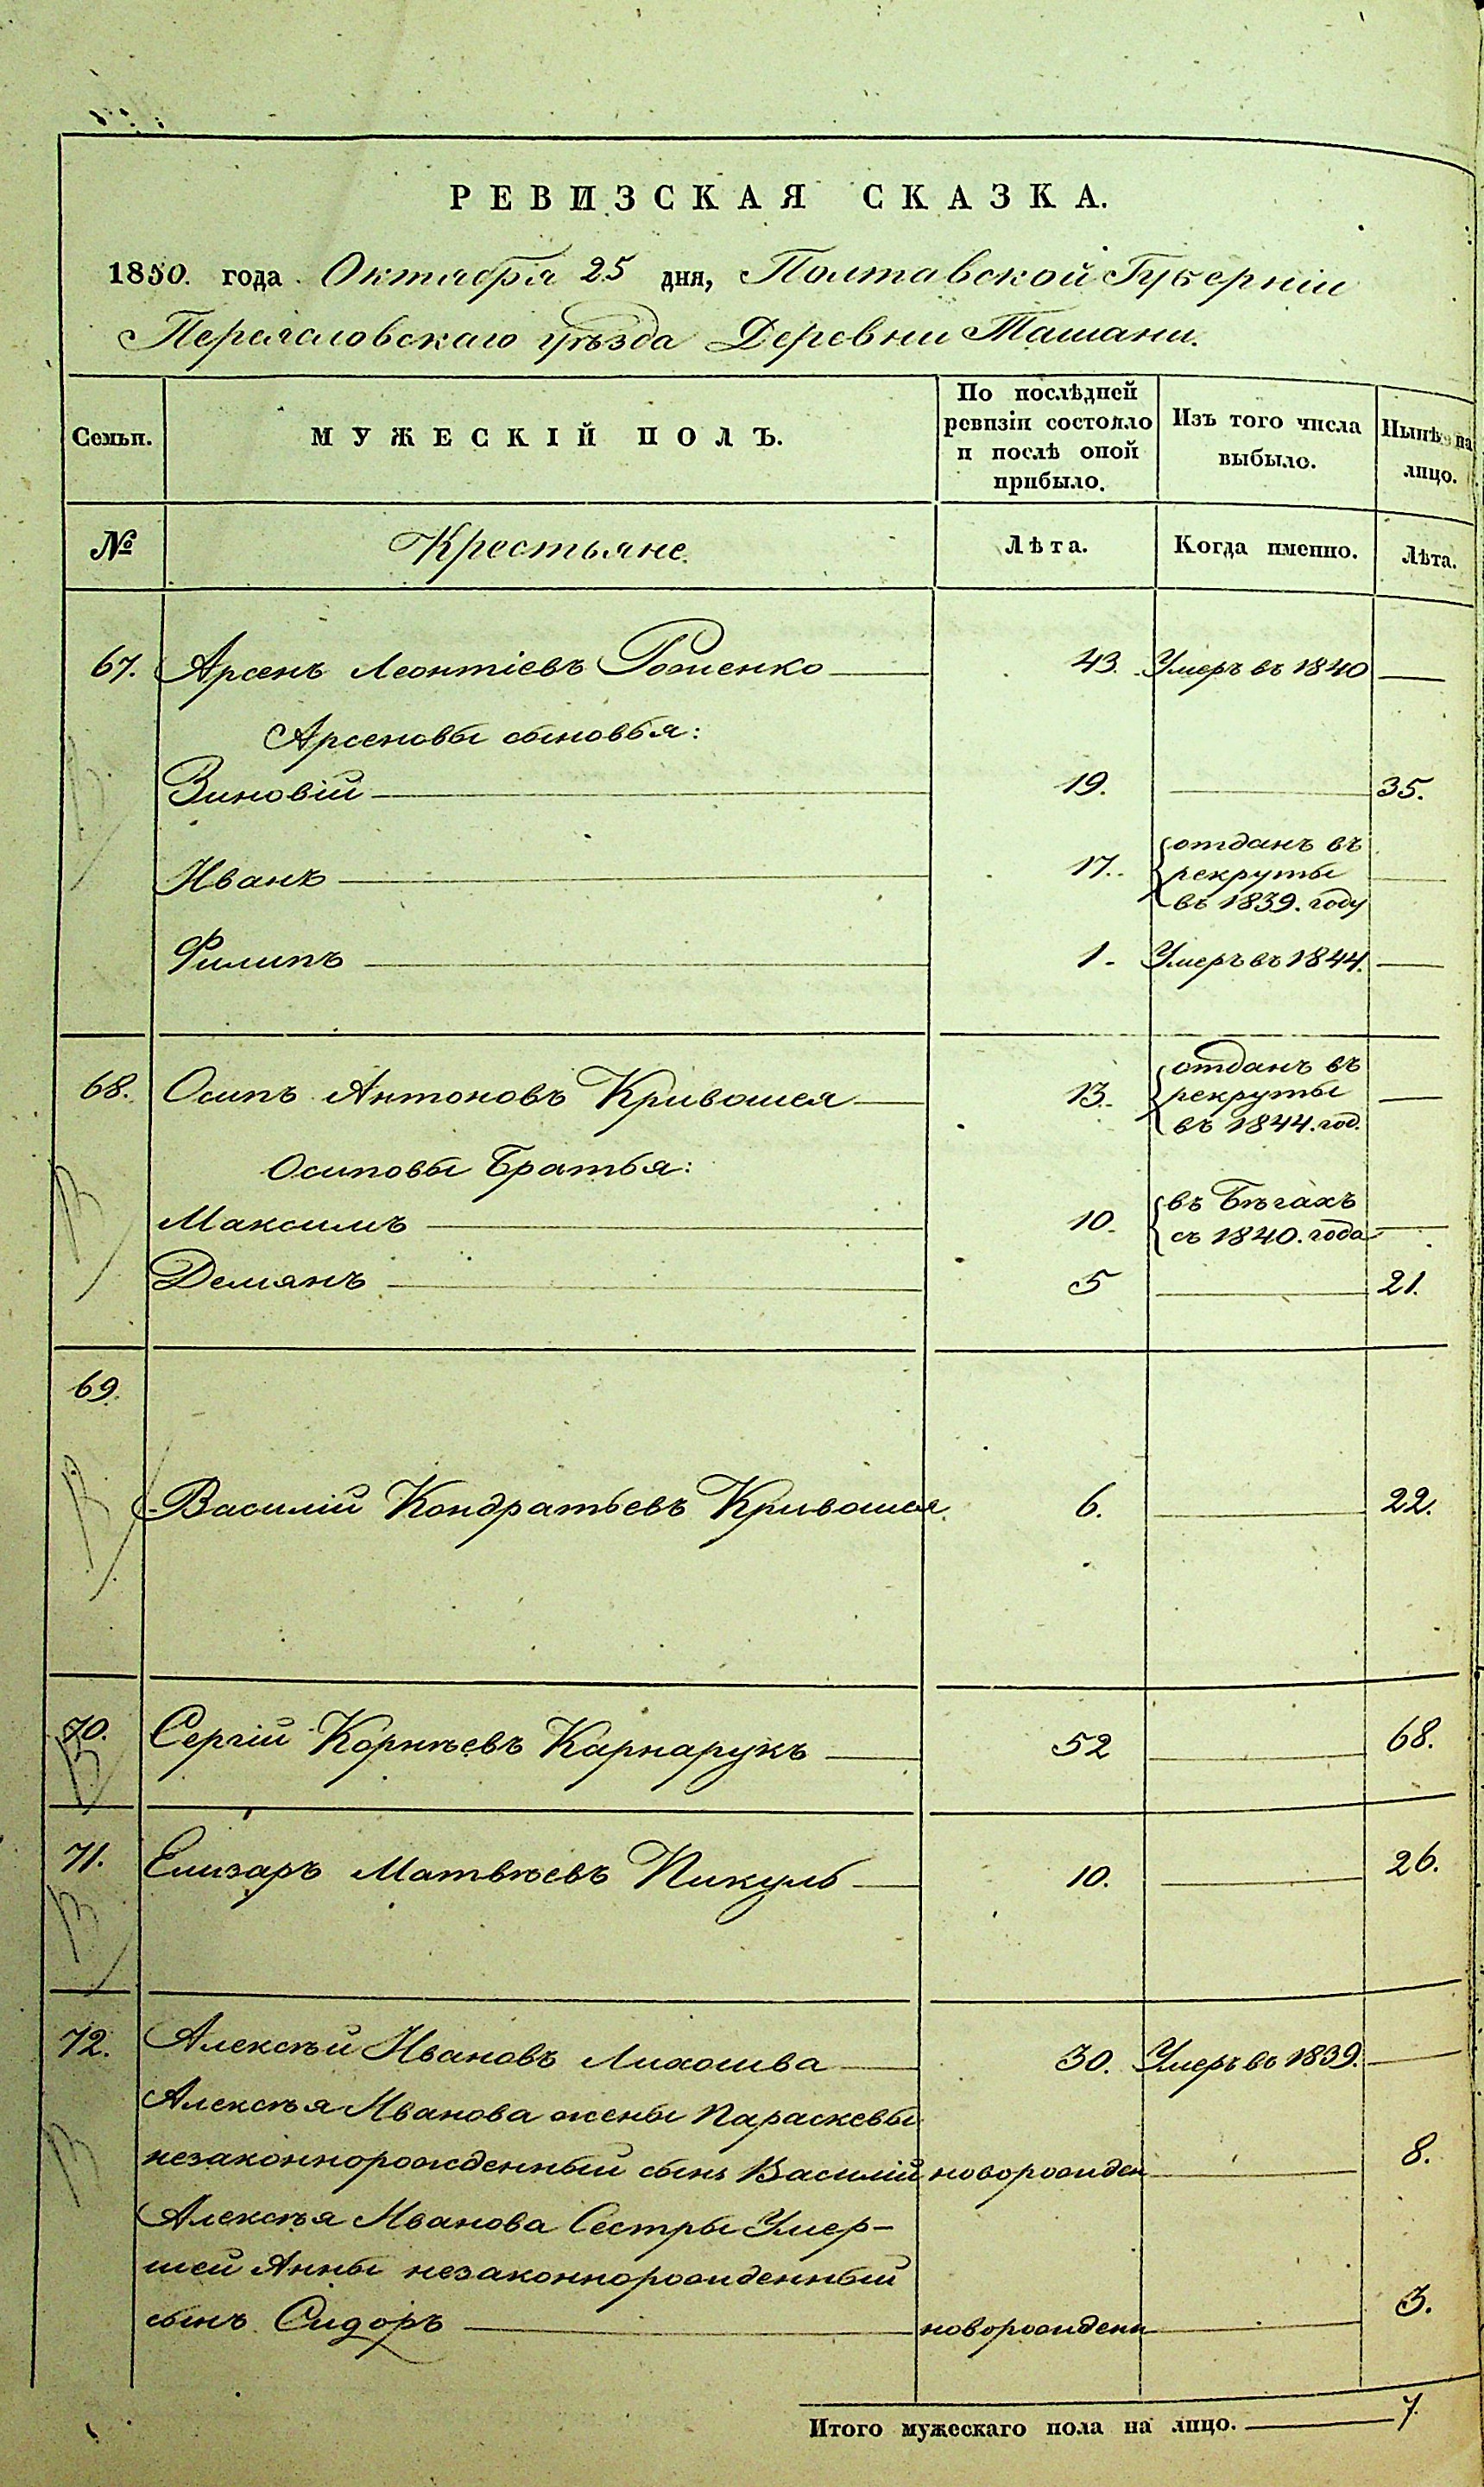 РЕВИЗСКАЯ СКАЗКА.
1850. года Октября 25 дня, Полтавской Губерніи
Переяславскаго уѣзда Деревни Ташани.
Семьи. МУЖЕСКІЙ ПОЛЪ. По послѣдней ревизіи состояло и послѣ оной прибыло. Изъ того числа выбыло. Нынѣ на лицо.
№ Крестьяне Лѣта. Когда именно. Лѣта.
67. Арсенъ Леонтіевъ 43. Умеръ въ 1840
Арсеновы сыновья:
Зиновій 19. 35.
Иванъ 17. отданъ въ рекруты въ 1839. году
Филипъ 1 Умеръ въ 1844.
68. Осипъ Антоновъ Кривошея 13. отданъ въ рекруты въ 1844. год.
Осиповы Братья:
Максимъ 10. въ Бѣгахъ съ 1840. года
Демянъ 5 21.
69.
Василій Кондратьевъ Кривошея. 6. 22.
70. Сергій Корнѣевъ Карнарукъ 52 68.
71. Елизаръ Матвѣевъ Пикуль 10. 26.
72. Алексѣй Ивановъ Лихошва 30. Умеръ въ 1839.
Алексѣя Иванова жены Параскевы
незаконнорожденный сынъ Василій новорожден 8.
Алексѣя Иванова Сестры Умер-
шей Анны незаконнорожденный
сынъ Сидоръ новорожденн 3.
Итого мужескаго пола на лицо. 7.